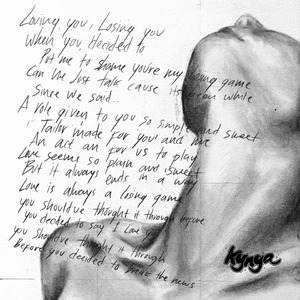 Loving you, Losing you
When you decided to
Put me to shame you're my losing game
Can we just talk cause its been while
Since we said..
A role given to you so simple and sweet
Tailor made for you and me
An act an for us to play
Love seems so plain and sweet
But it always ends in a way
Love is always a losing game
you should've thought it through before
you decided to say I love you
you should've thought it through
Before you decided to break the news
Kynya